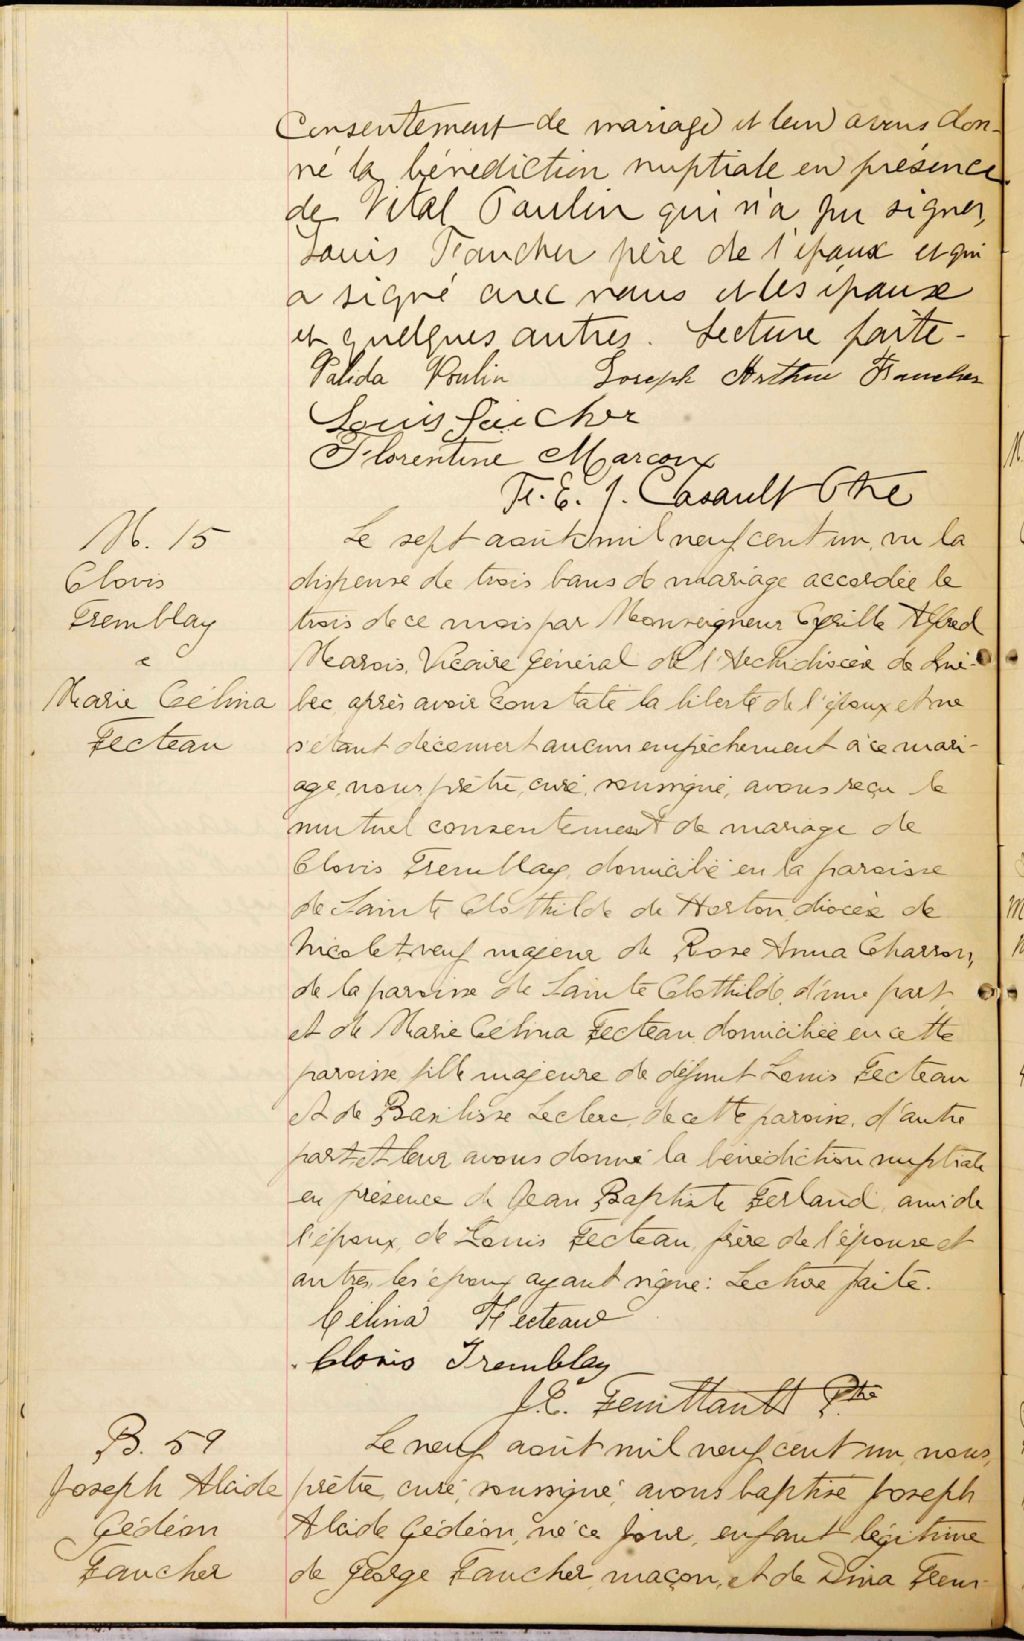 Consentement de mariage et leur avons don-
né la bénédiction nuptiale en présence
de Vital Poulin qui n'a pu signer,
Louis Faucher père de l'époux et qui
a signé avec nous et les époux
et quelques autres. Lecture faite-
Valida Poulin Joseph Arthur Faucher
Louis Faucher
Florentine Marcoux
F. E. J. Casault Ptre
M. 15
Clovis
Tremblay
&
Marie Célina
Fecteau
Le sept août mil neuf cent un, vu la
dispense de trois bans de mariage accordée le
trois de ce mois par Monseigneur Cyrille Alfred
Marois, Vicaire Général de l'Archidiocèse de Qué-
bec, après avoir constaté la liberté de l'époux et ne
s'étant découvert aucun empêchement à ce mari-
age, nous, prêtre, curé, soussigné, avons reçu le
mutuel consentement de mariage de
Clovis Tremblay, domicilié en la paroisse
de Sainte Clothilde de Horton, diocèse de
Nicolet, veuf majeur de Rose Anna Charron,
de la paroisse de Sainte Clothilde, d'une part,
et de Marie Célina Fecteau, domiciliée en cette
paroisse, fille majeure de défunt Louis Fecteau
et de Basilisse Leclerc, de cette paroisse, d'autre
part, et leur avons donné la bénédiction nuptiale
en présence de Jean Baptiste Ferland, ami de
l'époux, de Louis Fecteau, frère de l'épouse et
autres, les époux ayant signé: Lecture faite.
Célina Fecteau
Clovis Tremblay
J. E. Feuiltault Ptre
B. 59
Joseph Alcide
Gédéon
Faucher
Le neuf août mil neuf cent un, nous,
prêtre, curé, soussigné, avons baptisé Joseph
Alcide Gédéon, né ce jour, enfant légitime
de George Faucher, maçon, et de Dina Trem-